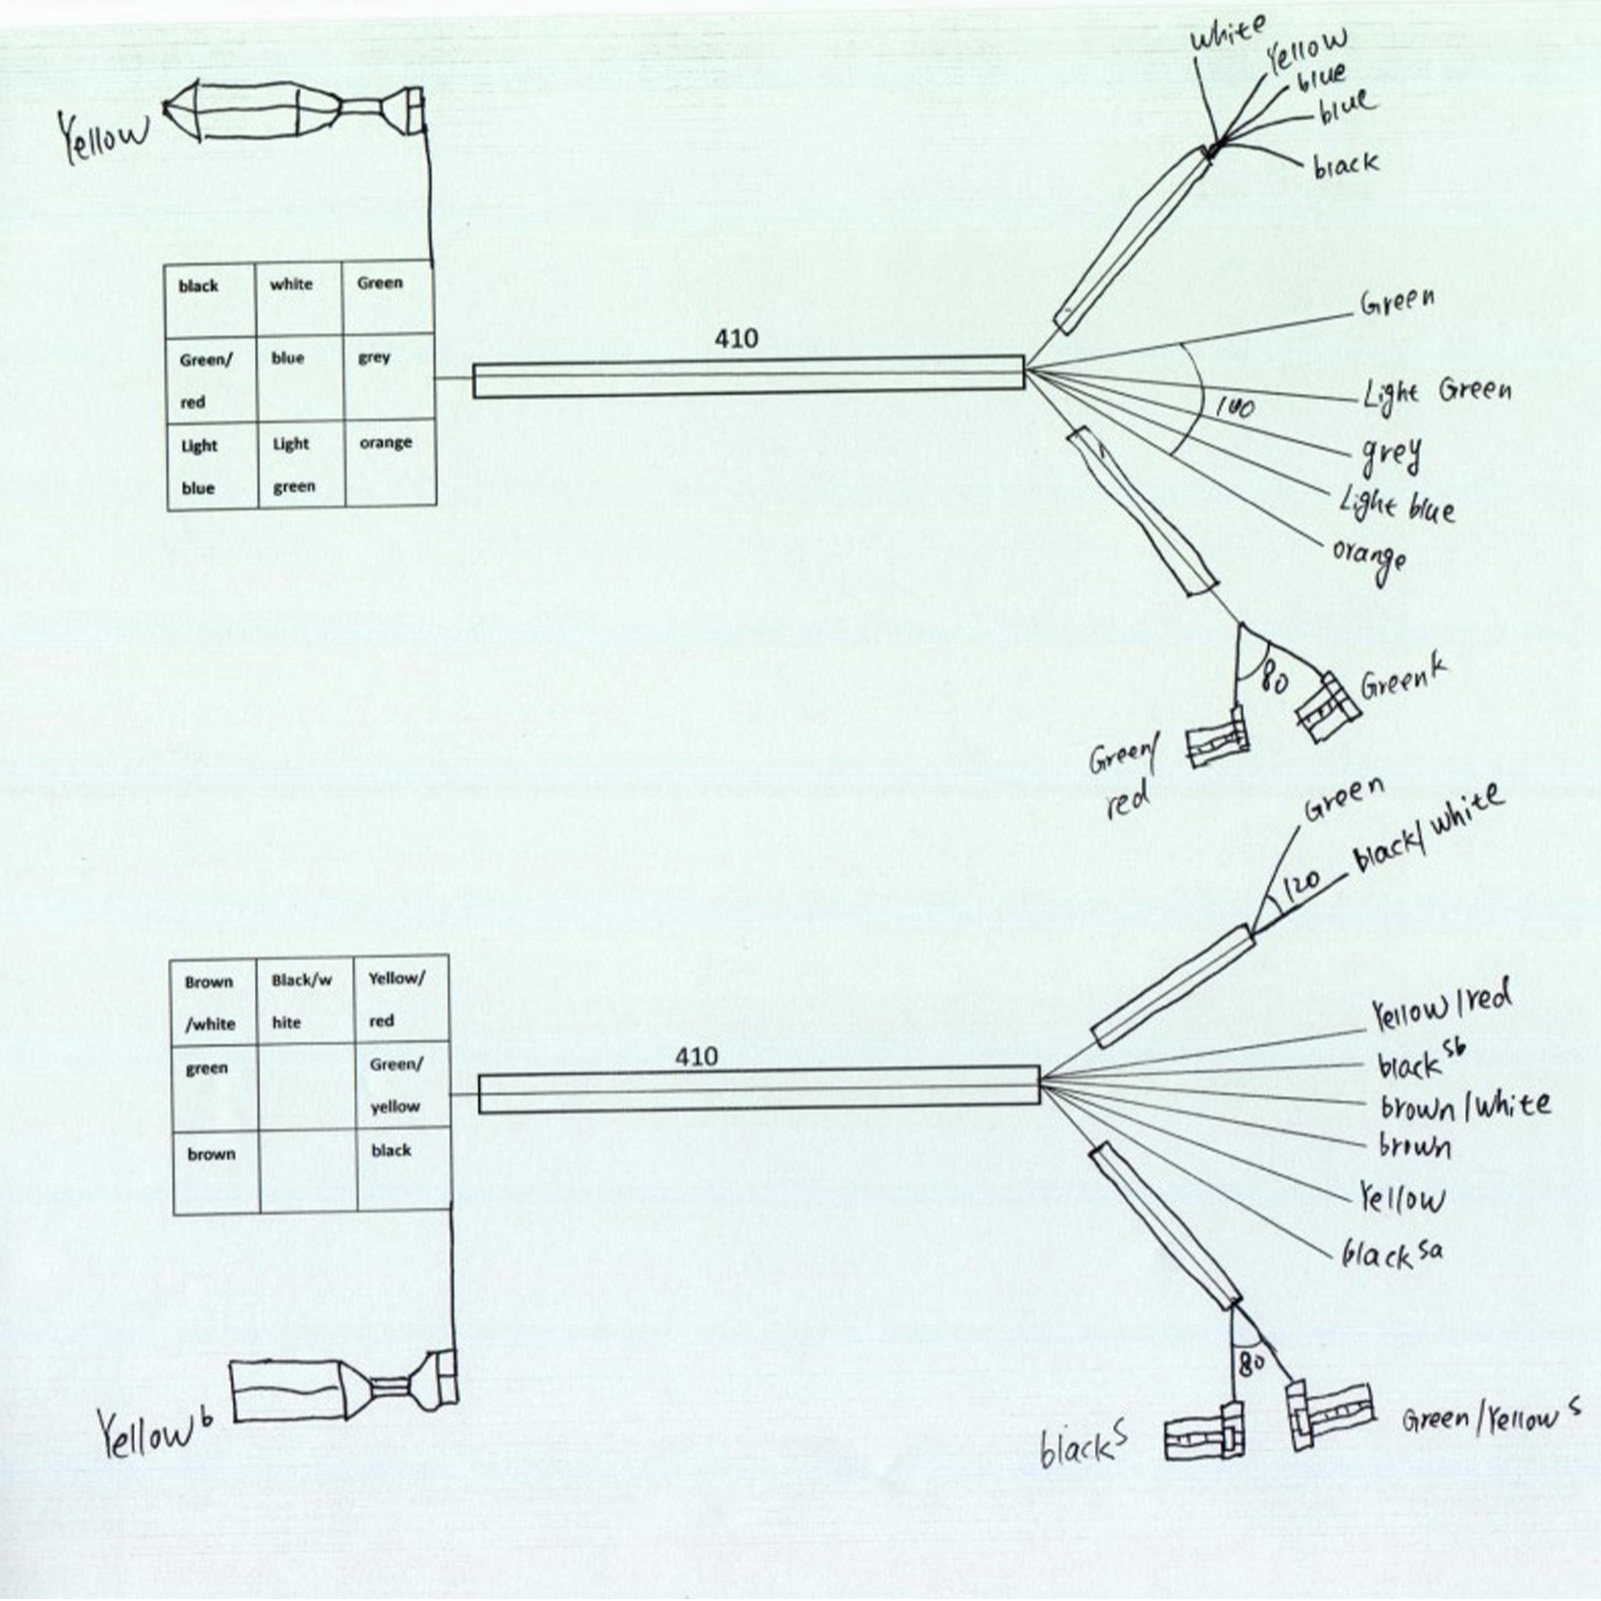 white
Yellow
blue
blue
black
Yellow
black white Green
Green/ blue grey
red
Light Light orange
blue green
410
Green
Light Green
100
grey
Light blue
orange
80
Greenk
Green/
red
Green
black/white
120
Brown Black/w Yellow/
/white hite red
green Green/
yellow
brown black
410
Yellow/red
black sb
brown/white
brown
Yellow
black sa
80
Yellow b
black s
Green/Yellow s